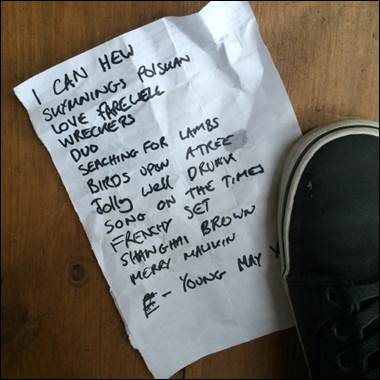 I CAN HEW
SKYMNINGS POLSKAN
LOVE FAREWELL
WRECKERS
DUO
SEARCHING FOR LAMBS
BIRDS UPON A TREE
Jolly Well DRUNK
SONG ON THE TIMES
FRENCHY SET
SHANGHAI BROWN
MERRY MAWKIN
E - YOUNG MAY